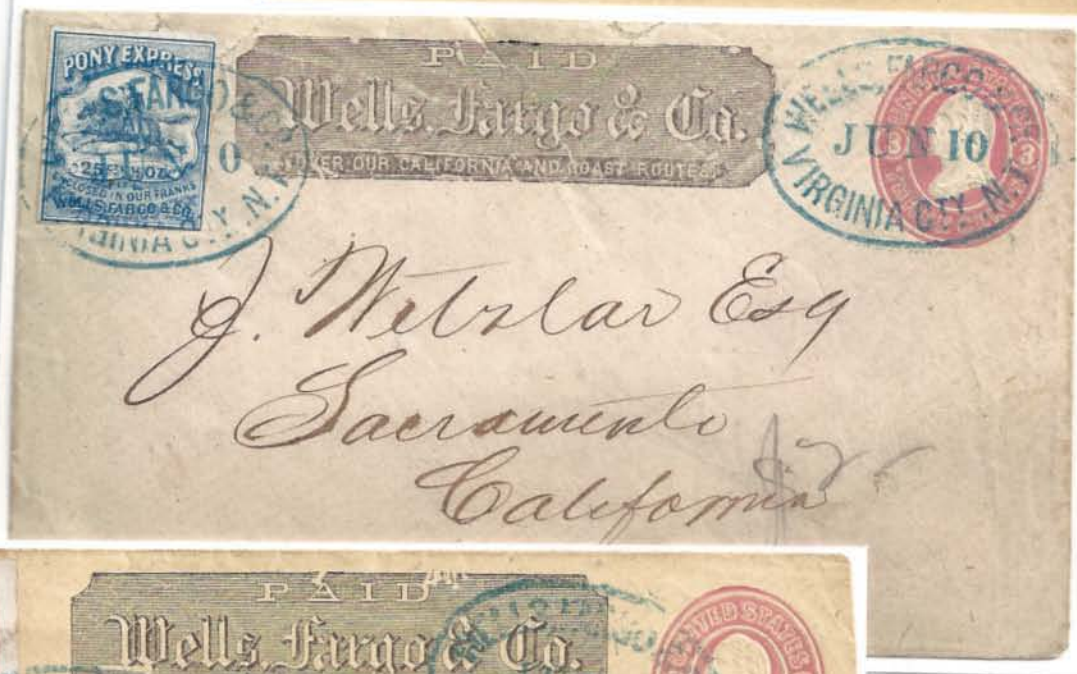 PONY EXPRESS
25 Cts. ½ OZ.
ENCLOSED IN OUR FRANKS
WELLS, FARGO & CO.
WELLS, FARGO & CO.
0
VIRGINIA CTY. N.T.
PAID
Wells, Fargo & Co.
OVER OUR CALIFORNIA AND COAST ROUTES.
WELLS, FARGO & CO.
JUN 10
VIRGINIA CTY. N.T.
3 3
J. Wetzlar Esq
Sacramento
California
PAID
Wells, Fargo & Co.
UNITED STATES